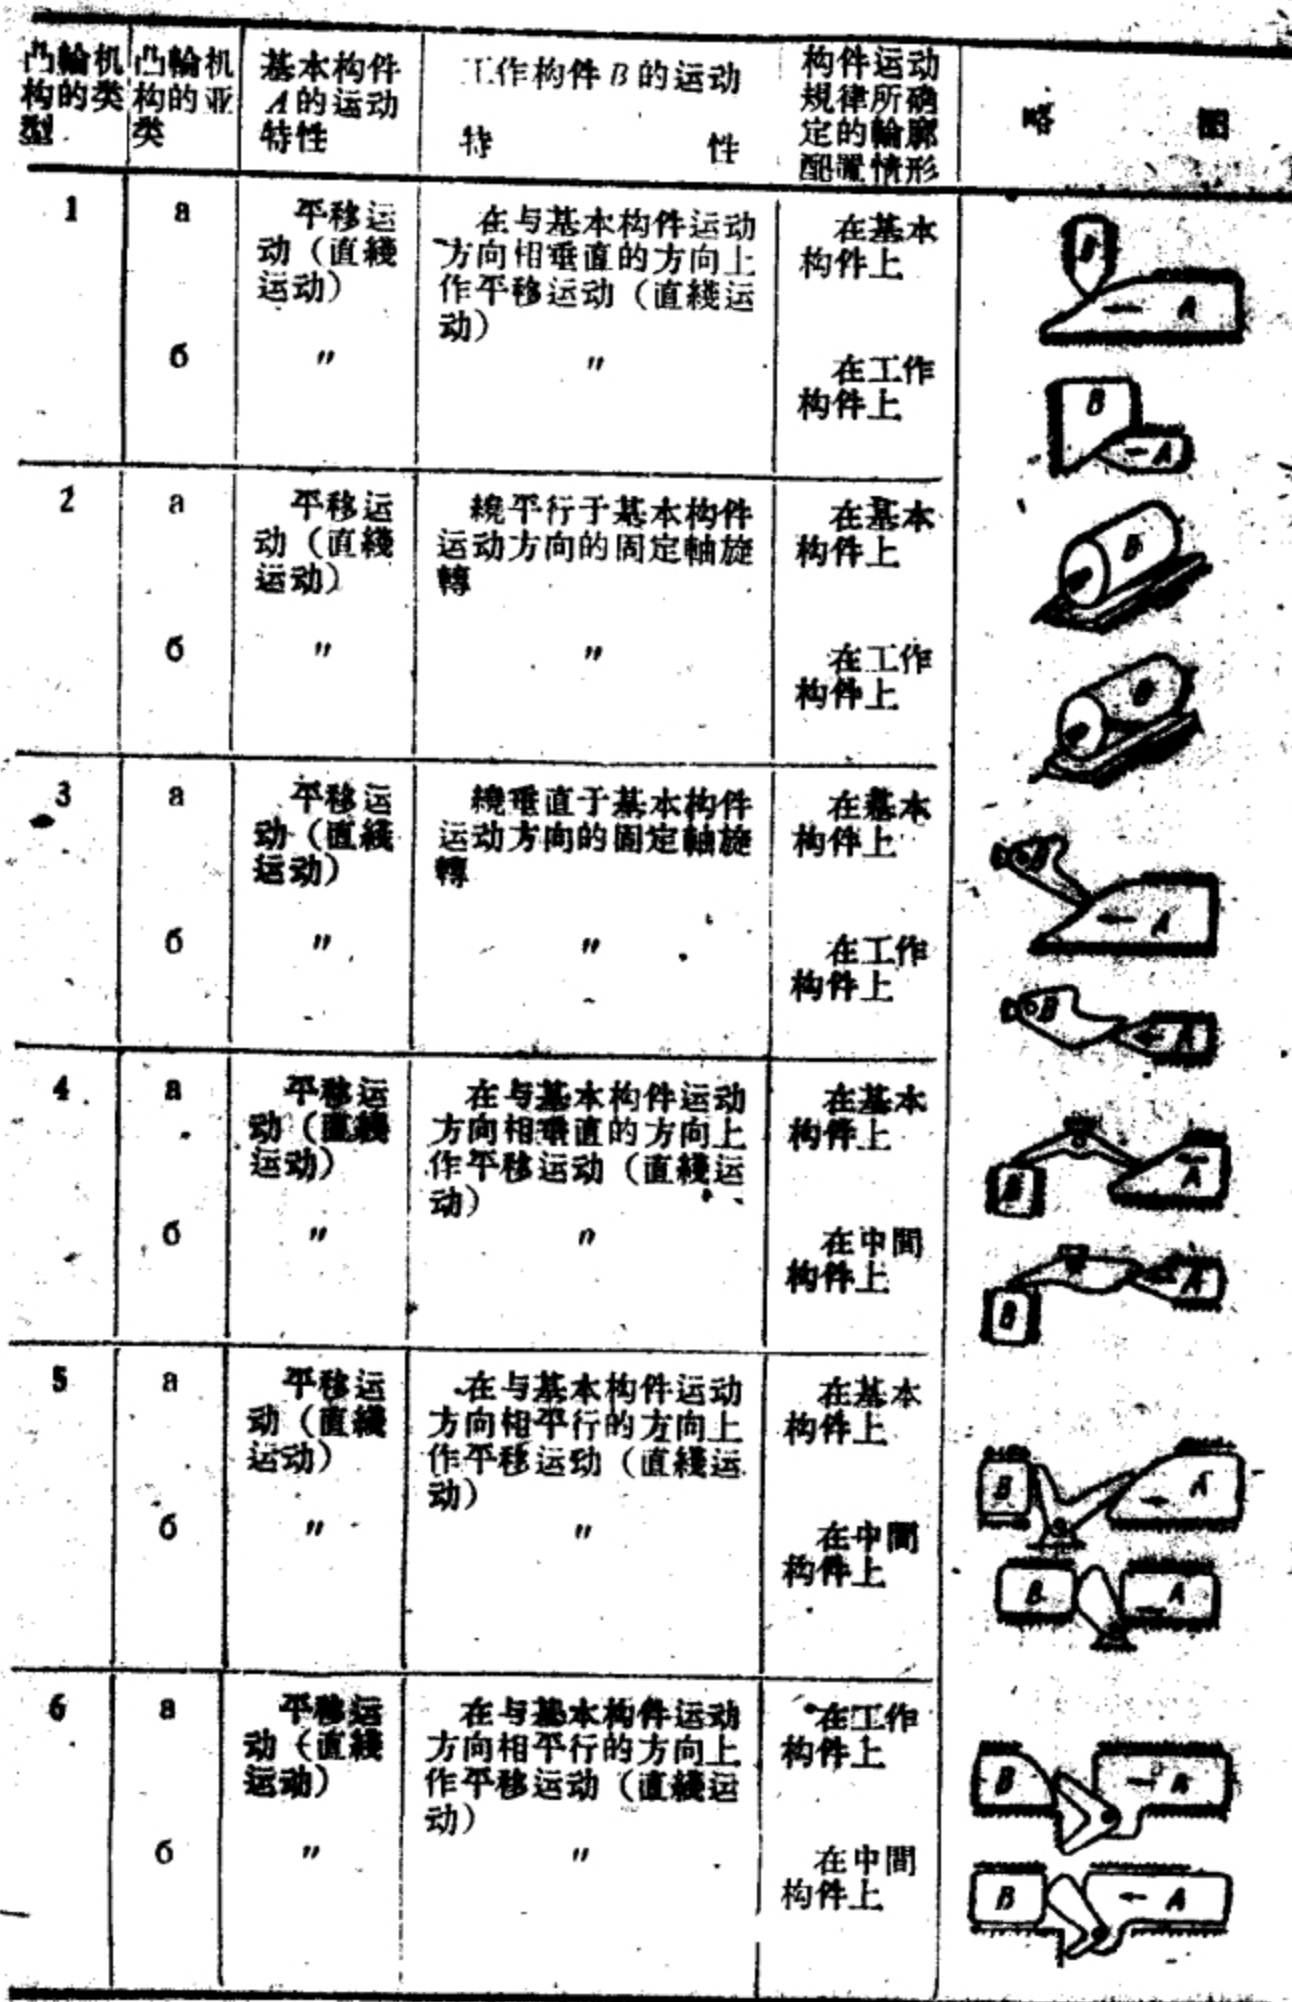 凸輪机构的类型
凸輪机构的亚类
基本构件A的运动特性
工作构件B的运动特性
构件运动規律所确定的輪廓配置情形
略 图
1
а
平移运
动（直綫
运动）
在与基本构件运动
方向相垂直的方向上
作平移运动（直綫运
动）
在基本
构件上
B
A
б
〃
〃
在工作
构件上
B
A
2
а
平移运
动（直綫
运动）
繞平行于基本构件
运动方向的固定軸旋
轉
在基本
构件上
B
б
〃
〃
在工作
构件上
B
3
а
平移运
动（直綫
运动）
繞垂直于基本构件
运动方向的固定軸旋
轉
在基本
构件上
B
A
б
〃
〃
在工作
构件上
B
A
4
а
平移运
动（直綫
运动）
在与基本构件运动
方向相垂直的方向上
作平移运动（直綫运
动）
在基本
构件上
B
A
б
〃
〃
在中間
构件上
B
A
5
а
平移运
动（直綫
运动）
在与基本构件运动
方向相平行的方向上
作平移运动（直綫运
动）
在基本
构件上
B
A
б
〃
〃
在中間
构件上
B
A
6
а
平移运
动（直綫
运动）
在与基本构件运动
方向相平行的方向上
作平移运动（直綫运
动）
在工作
构件上
B
A
б
〃
〃
在中間
构件上
B
A